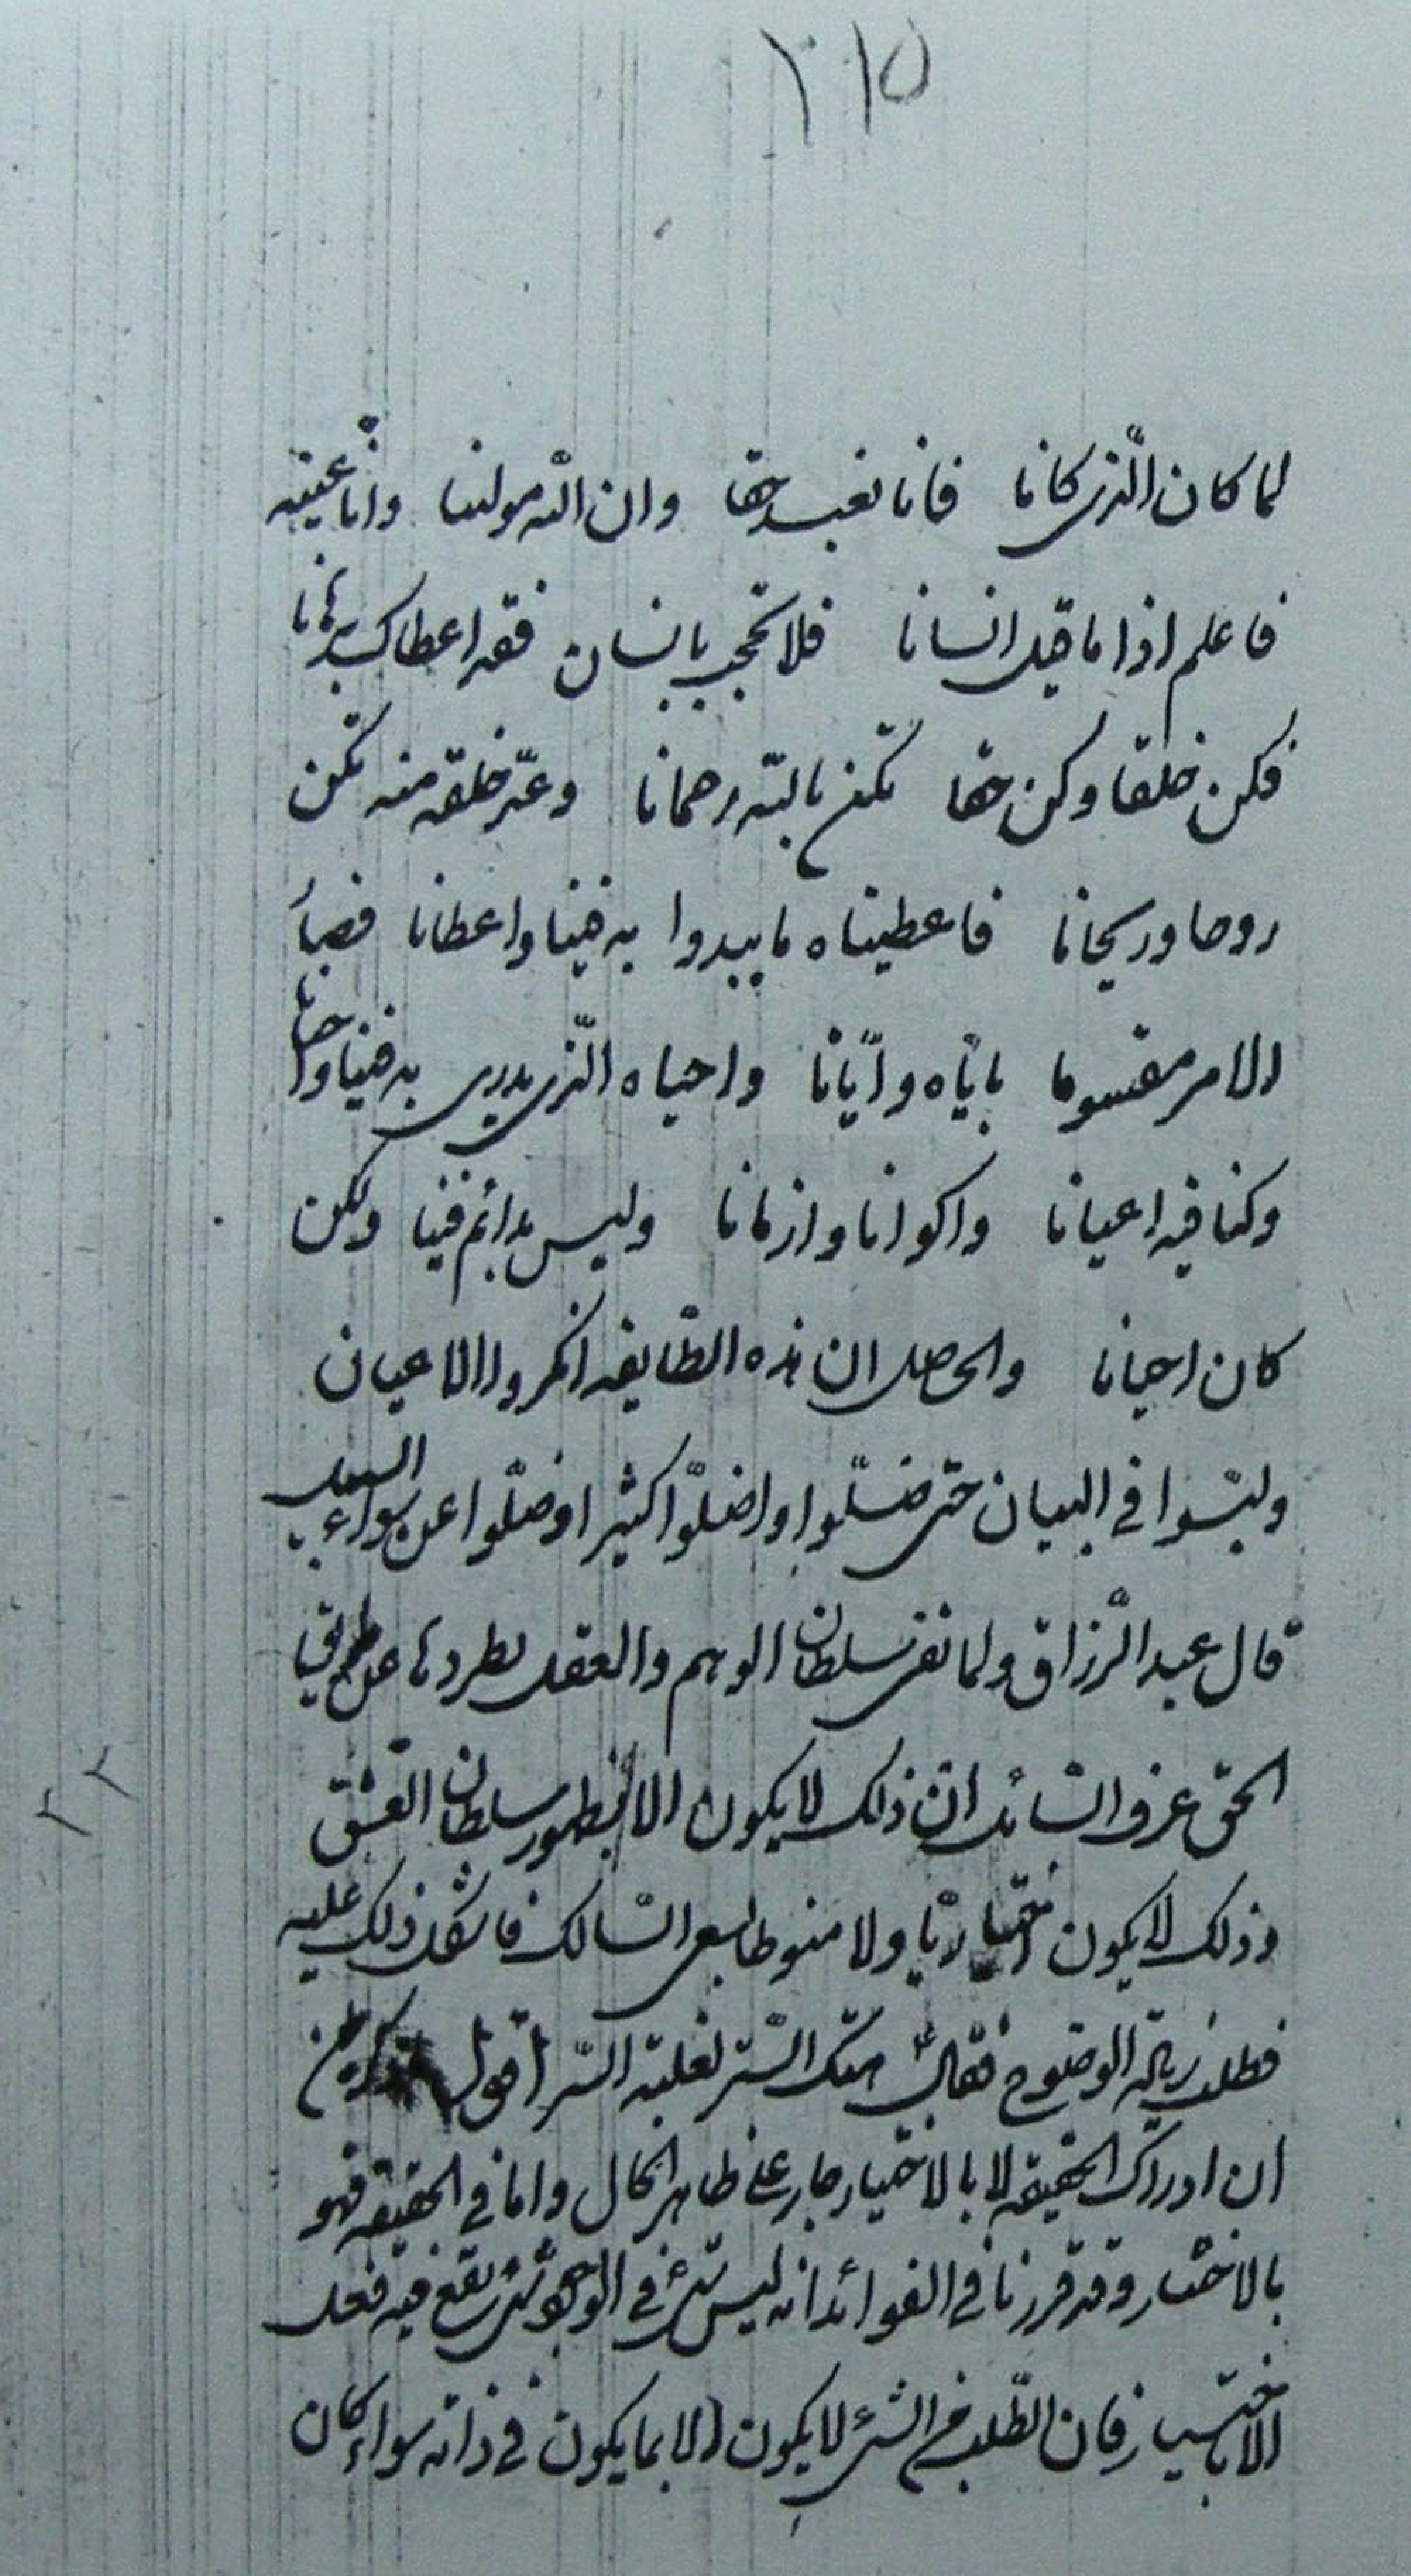 ٢١٥
لما كان الّذی كانا فانا نعبد حقا وان اللّه مولینا وانّا عینه
فاعلم اذا ما قیل انسانا فلا تحجب بانسان فقد اعطاك برهانا
فكن خلقا وكن حقا تكن باللّه رحمانا وغذّ خلقه منه تكن
روحا وریحانا فاعطیناه ما یبدوا به فینا واعطانا فصار
الامر مقسوما بایّاه وایّانا واحیاه الّذی یدری به فینا واحیانا
وكنا فیه اعیانا واكوانا وازمانا ولیس بدائم فینا ولكن
كان احیانا والحاصل ان هذه الطّایفه انكروا الاعیان
ولبّسوا فی البیان حتی ضلّوا واضلّوا كثیرا وضلّوا عن سواء السبیل
قال عبد الرّزاق ولما نفی سلطان الوهم والعقل بطردها عن طریق
الحق عرف السّائل انّ ذلك لا یكون الا بظهور سلطان العشق
وذلك لا یكون اختیاریّا ولا منوطا بسعی السّالك فاشكل ذلك علیه
فطلب زیاله الوضوح فقال هتك السّتر لغلبة السّر اقول
ان ادراك الحقیقه لا بالاختیار جار علی ظاهر الحال واما فی الحقیقه فهو
بالاختیار وقد قررنا فی الفوائد انه لیس شئ فی الوجود شئ یقع فیه فعل
الاختیار فان الطّلب من الشئ لا یكون الا بما یكون فی ذاته سواء كان
٢٢